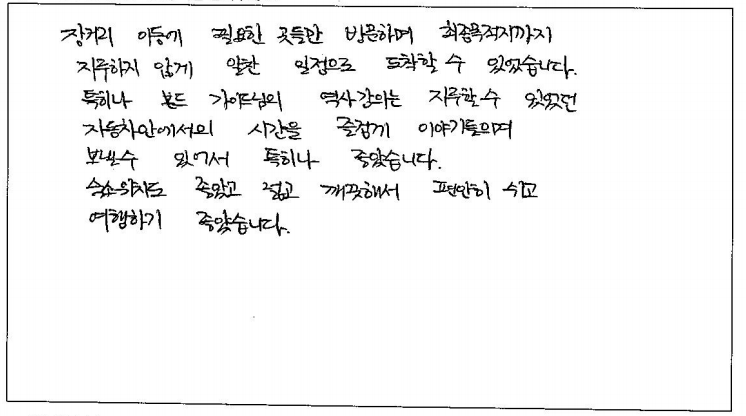 장거리 이동에 필요한 곳들만 방문하며 최종목적지까지
지루하지 않게 알찬 일정으로 도착할 수 있었습니다.
특히나 본드 가이드님의 역사강의는 지루할수 있었던
자동차안에서의 시간을 즐겁게 이야기들으며
보낼수 있어서 특히나 좋았습니다.
숙소위치도 좋았고 넓고 깨끗해서 편안히 쉬고
여행하기 좋았습니다.